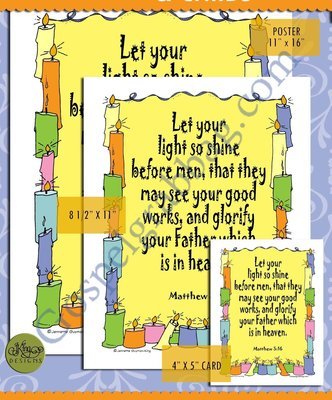 POSTER
11" x 16"
Let your
light so shine
Let your
light so shine
before men, that they
may see your good
works, and glorify
your Father which
is in heav
Matthew
8 1 2" X 11"
Let your
light so shine
before men, that they
may see your good
works, and glorify
your Father which
is in heaven.
Matthew 5:16
4" X 5" CARD
DESIGNS